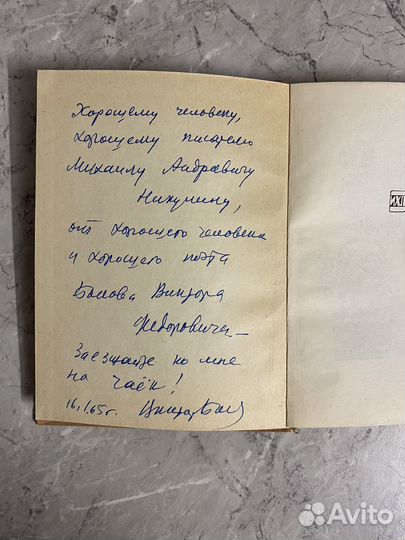 Хорошему человеку,
хорошему писателю
Михаилу Андреевичу
Никулину,
от хорошего человека
и хорошего поэта
Бокова Виктора
Федоровича –
Заезжайте ко мне
на чаёк!
16.I.65 г. Виктор Боков
Avito